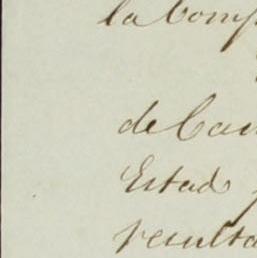 la Comp
de Cam
Estado
resulta